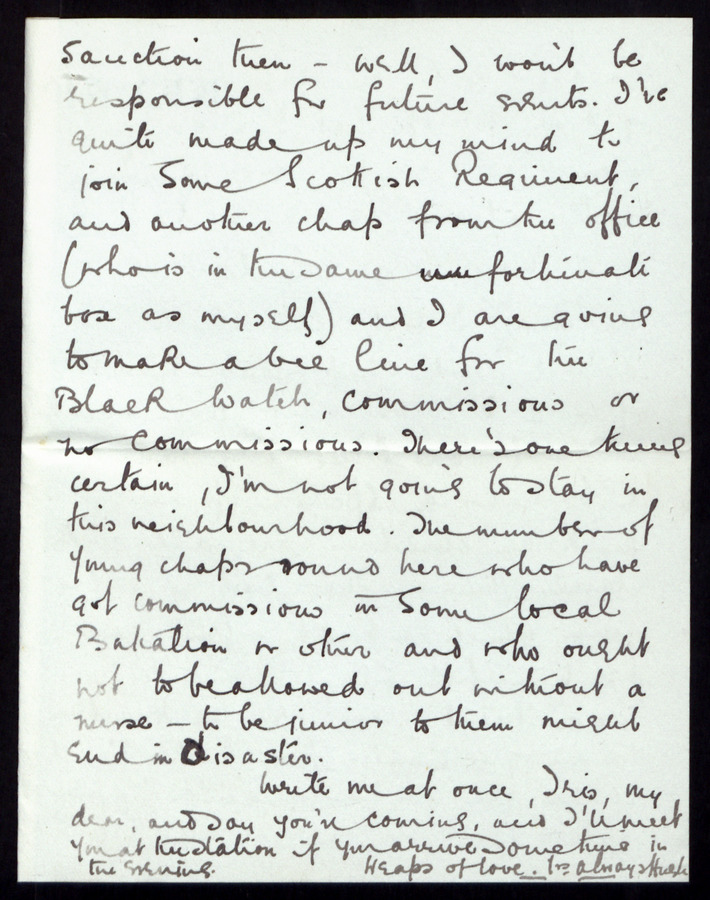 Sanction them – well, I won't be
responsible for future events. I've
quite made up my mind to
join some Scottish Regiment,
and another chap from the office
(who is in the same unfortunate
box as myself) and I are going
to make a bee line for the
Black Watch, commissions or
no commissions. There's one thing
certain, I'm not going to stay in
this neighbourhood. The number of
young chaps round here who have
got commissions in some local
Battalion or other and who ought
not to be allowed out without a
nurse – to be junior to them might
end in disaster.
Write me at once, Iris, my
dear, and say you're coming, and I'll meet
you at the station if you arrive sometime in
the evening.
Heaps of love. Yrs always Hugh